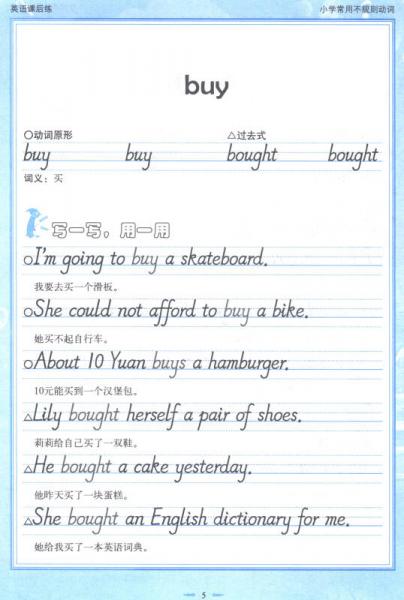 英语课后练 小学常用不规则动词
buy
○动词原形 △过去式
buy buy bought bought
词义：买
写一写，用一用
○I'm going to buy a skateboard.
我要去买一个滑板。
○She could not afford to buy a bike.
她买不起自行车。
○About 10 Yuan buys a hamburger.
10元能买到一个汉堡包。
△Lily bought herself a pair of shoes.
莉莉给自己买了一双鞋。
△He bought a cake yesterday.
他昨天买了一块蛋糕。
△She bought an English dictionary for me.
她给我买了一本英语词典。
5